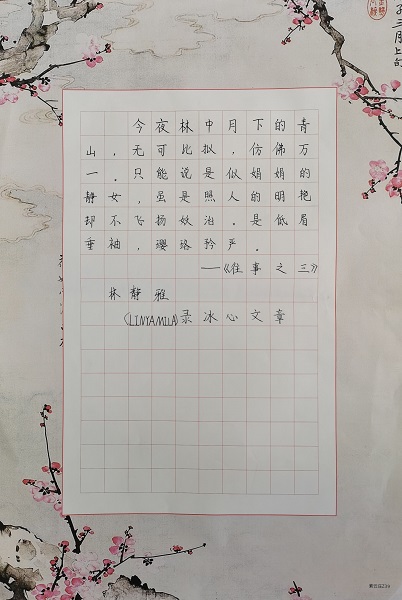 今夜林中月下的青
山，无可比拟，仿佛万
一。只能说是似娟娟的
静女，虽是照人的明艳
却不飞扬妖冶。是低眉
垂袖，璎珞矜严。
——《往事之三》
林静雅
(LINYAMILA)录冰心文章